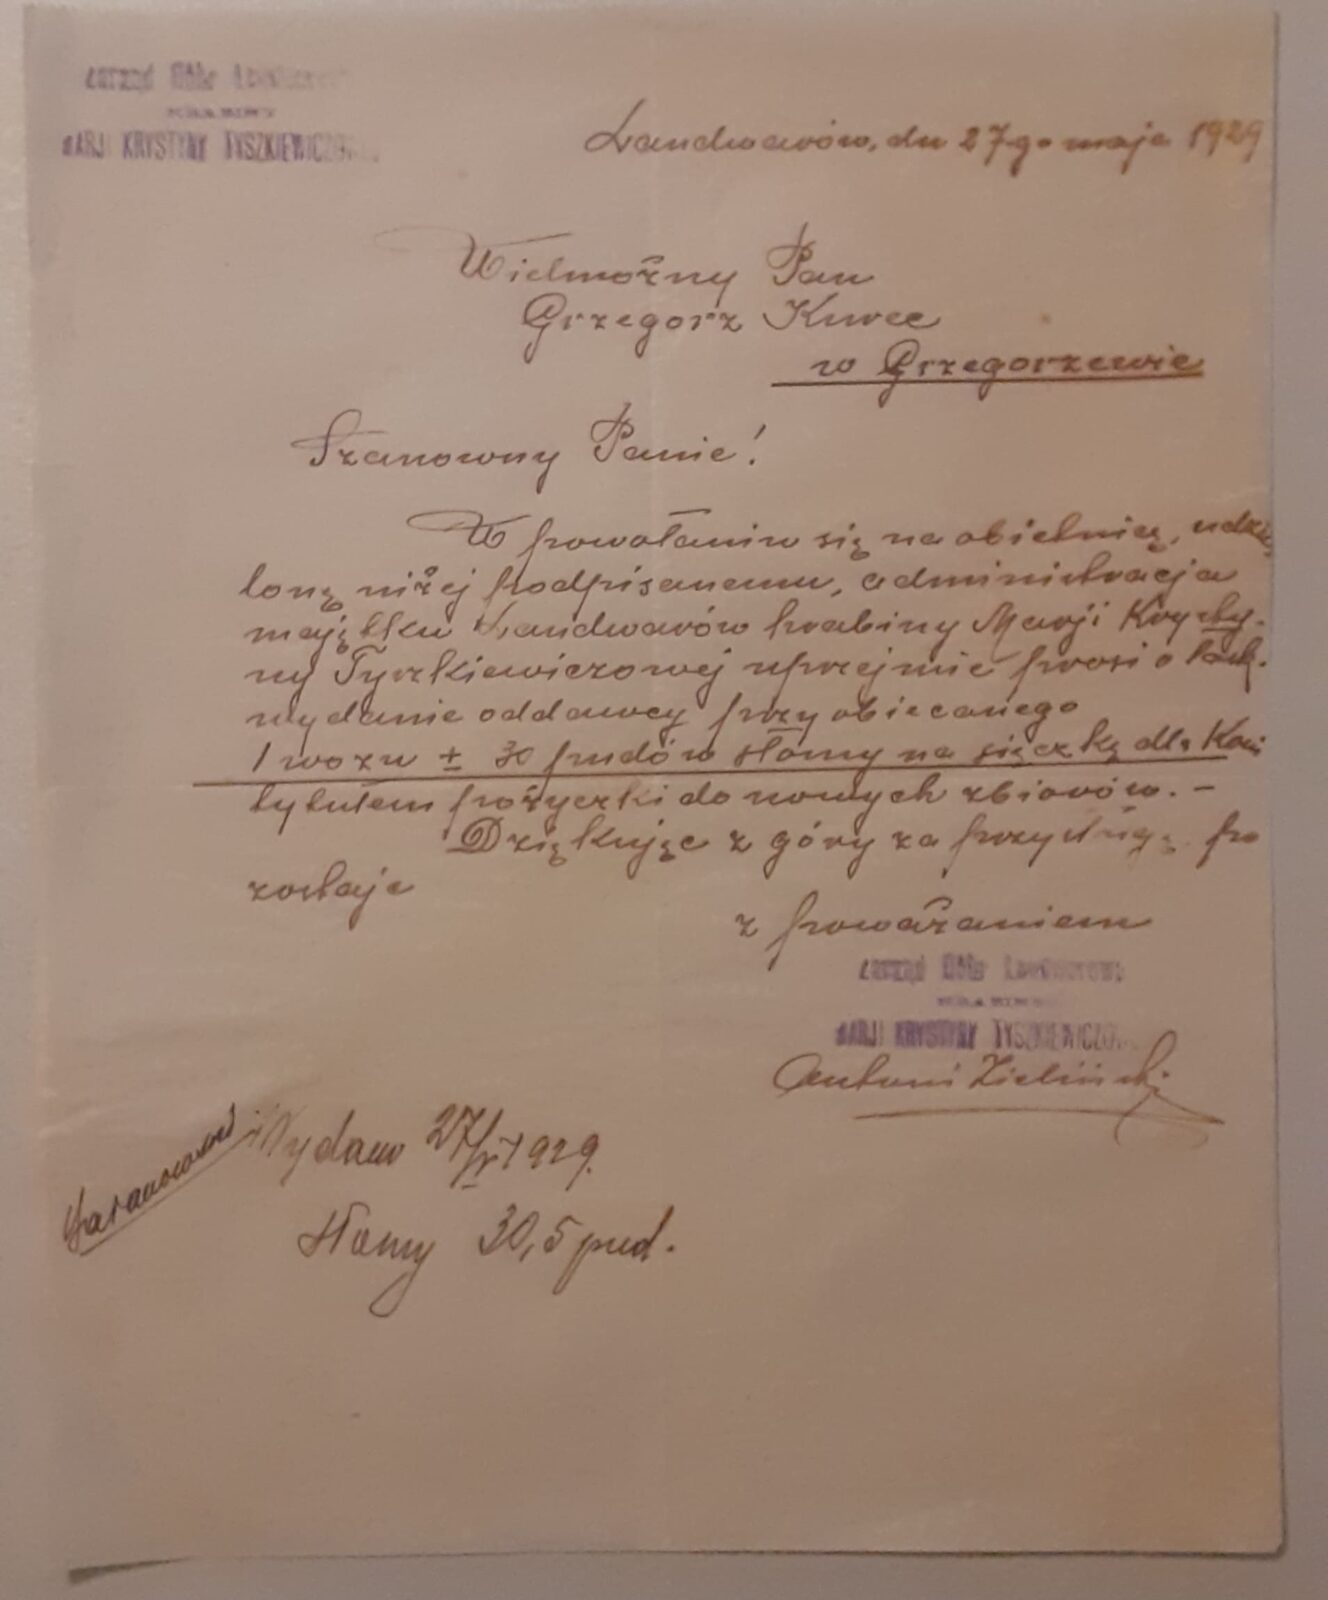 Zarząd Dóbr Landwarowo
HRABINY
MARJI KRYSTYNY TYSZKIEWICZOWEJ
Landwarów, dn 27-go maja 1929
Wielmożny Pan
Grzegorz Kurec
w Grzegorzewie
Szanowny Panie!
W powołaniu się na obietnicę, udzie
loną niżej podpisanemu, administracja
majątku Landwarów hrabiny Marji Krysty-
ny Tyszkiewiczowej uprzejmie prosi o łask.
wydanie oddawcy przyobiecanego
1 wozu ± 30 pudów słomy na sieczkę dla Koni
tytułem pożyczki do nowych zbiorów. -
Dziękując z góry za przysługę po
zostaje
z poważaniem
Zarząd Dóbr Landwarowo
HRABINY
MARJI KRYSTYNY TYSZKIEWICZOWEJ
Antoni Zieliński
Wydano 27/V 1929.
słomy 30,5 pud.